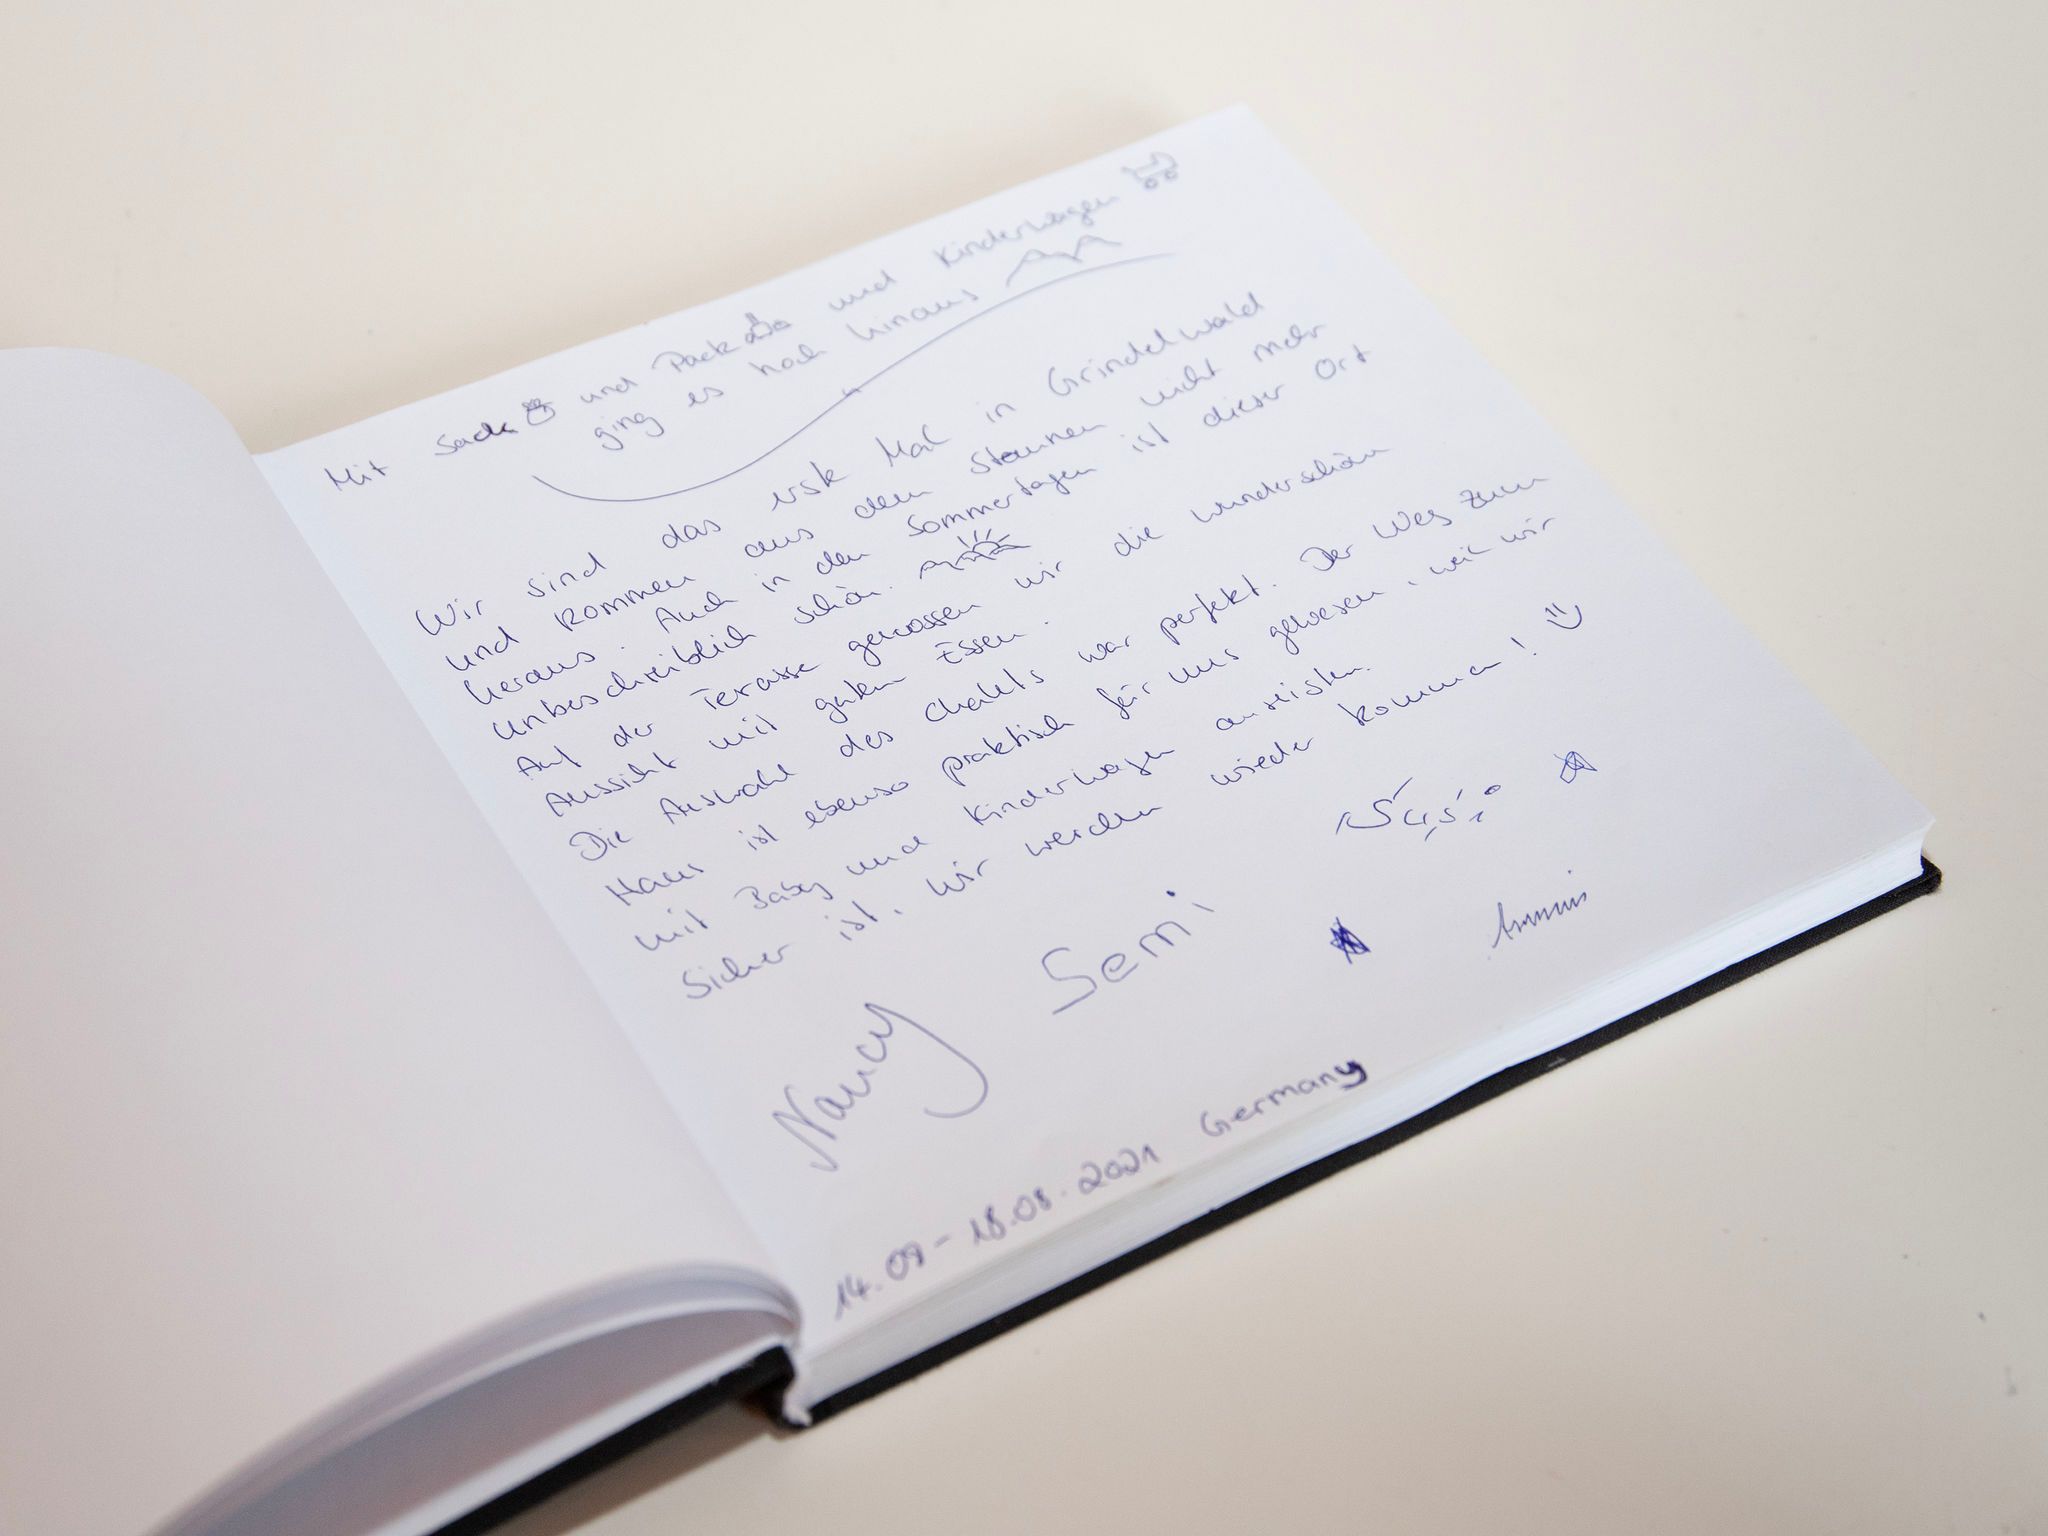 Mit Sack und Pack und Kinderwagen
ging es hoch hinaus
Wir sind das erste Mal in Grindelwald
und kommen aus dem Staunen nicht mehr
heraus. Auch in den Sommertagen ist dieser Ort
unbeschreiblich schön.
Auf der Terasse genossen wir die wunderschön
Aussicht mit guten Essen.
Die Auswahl des Chalets war perfekt. Der Weg zum
Haus ist ebenso praktisch für uns gewesen, weil wir
mit Baby und Kinderwagen anreisten.
Sicher ist, wir werden wieder kommen!
Nancy Semi
14.09 - 18.08.2021 Germany